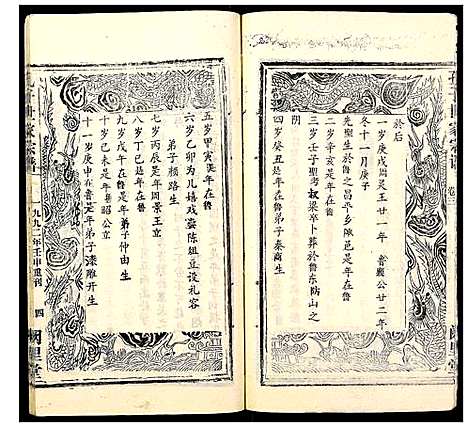 孔子世家宗譜
卷三
闕里堂
於后
一歲庚戌周灵王廿一年 魯襄公廿二年
冬十一月庚子
先聖生於魯之昌平乡陬邑是年在魯
三歲壬子聖考叔梁卒卜葬於魯东防山之
阴
四歲癸丑是年在魯弟子秦商生
五岁甲寅是年在魯
六岁乙卯为儿嬉戏尝陈俎豆设礼容
弟子颜路生
七岁丙辰是年周景王立
八岁丁巳是年在魯
九岁戊午在魯是年弟子仲由生
十岁己未是年魯昭公立
十一岁庚申在魯是年弟子漆雕开生
孔子世家宗譜
一九九二年壬申重刊
四
闕里堂